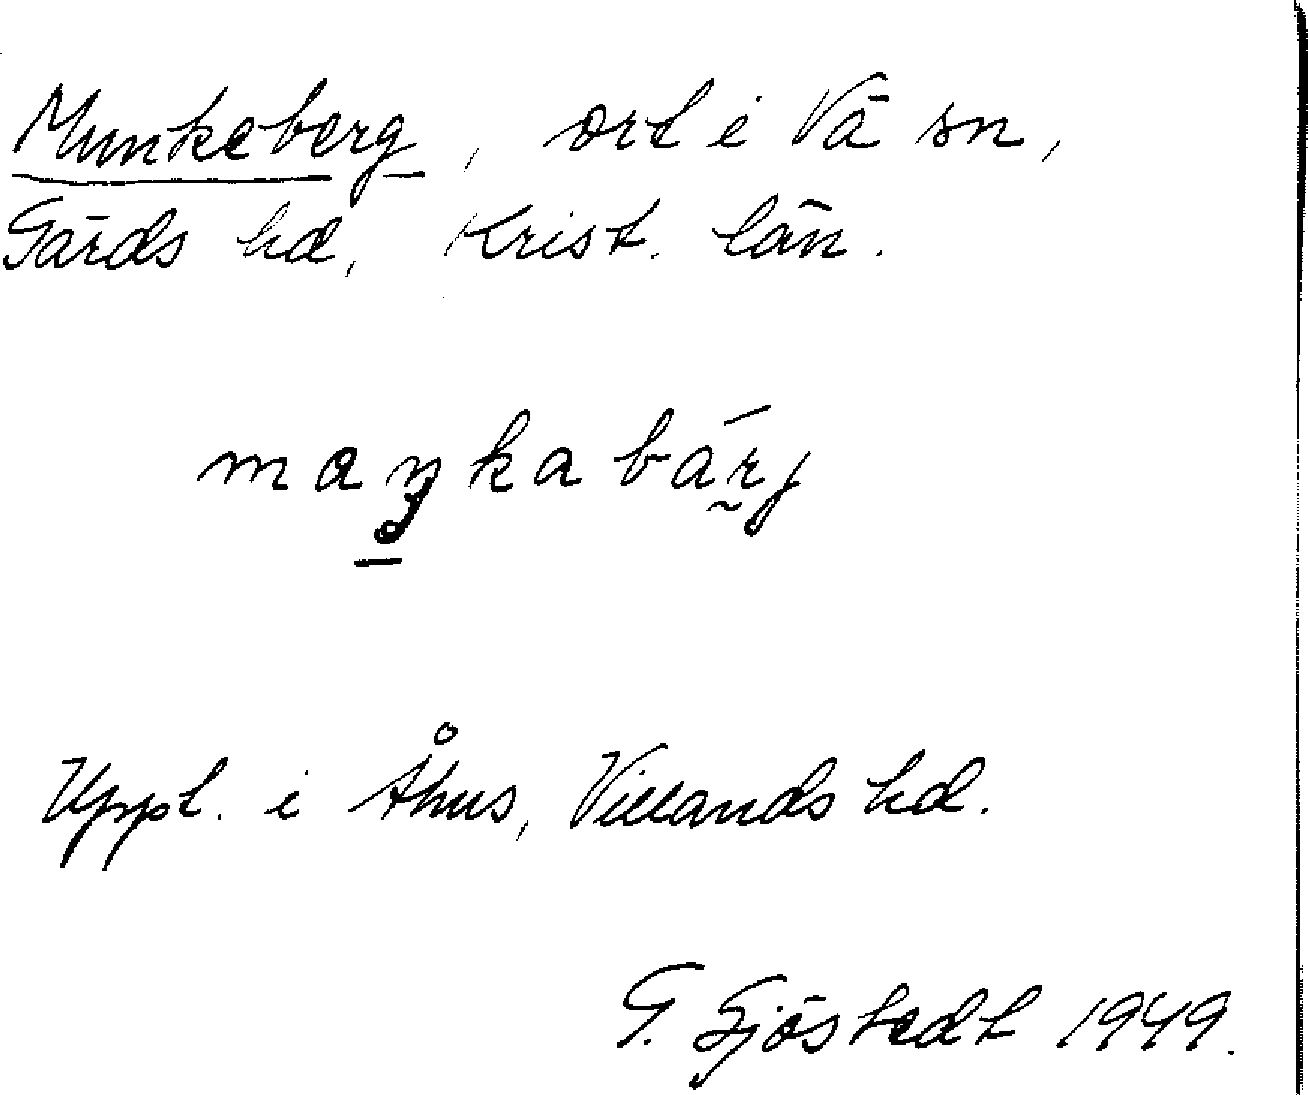 Munkeberg, ort i Vä sn,
Gärds hd, Krist. län.
maŋkabärj
Uppt. i Åhus, Villands hd.
G. Sjöstedt 1949.